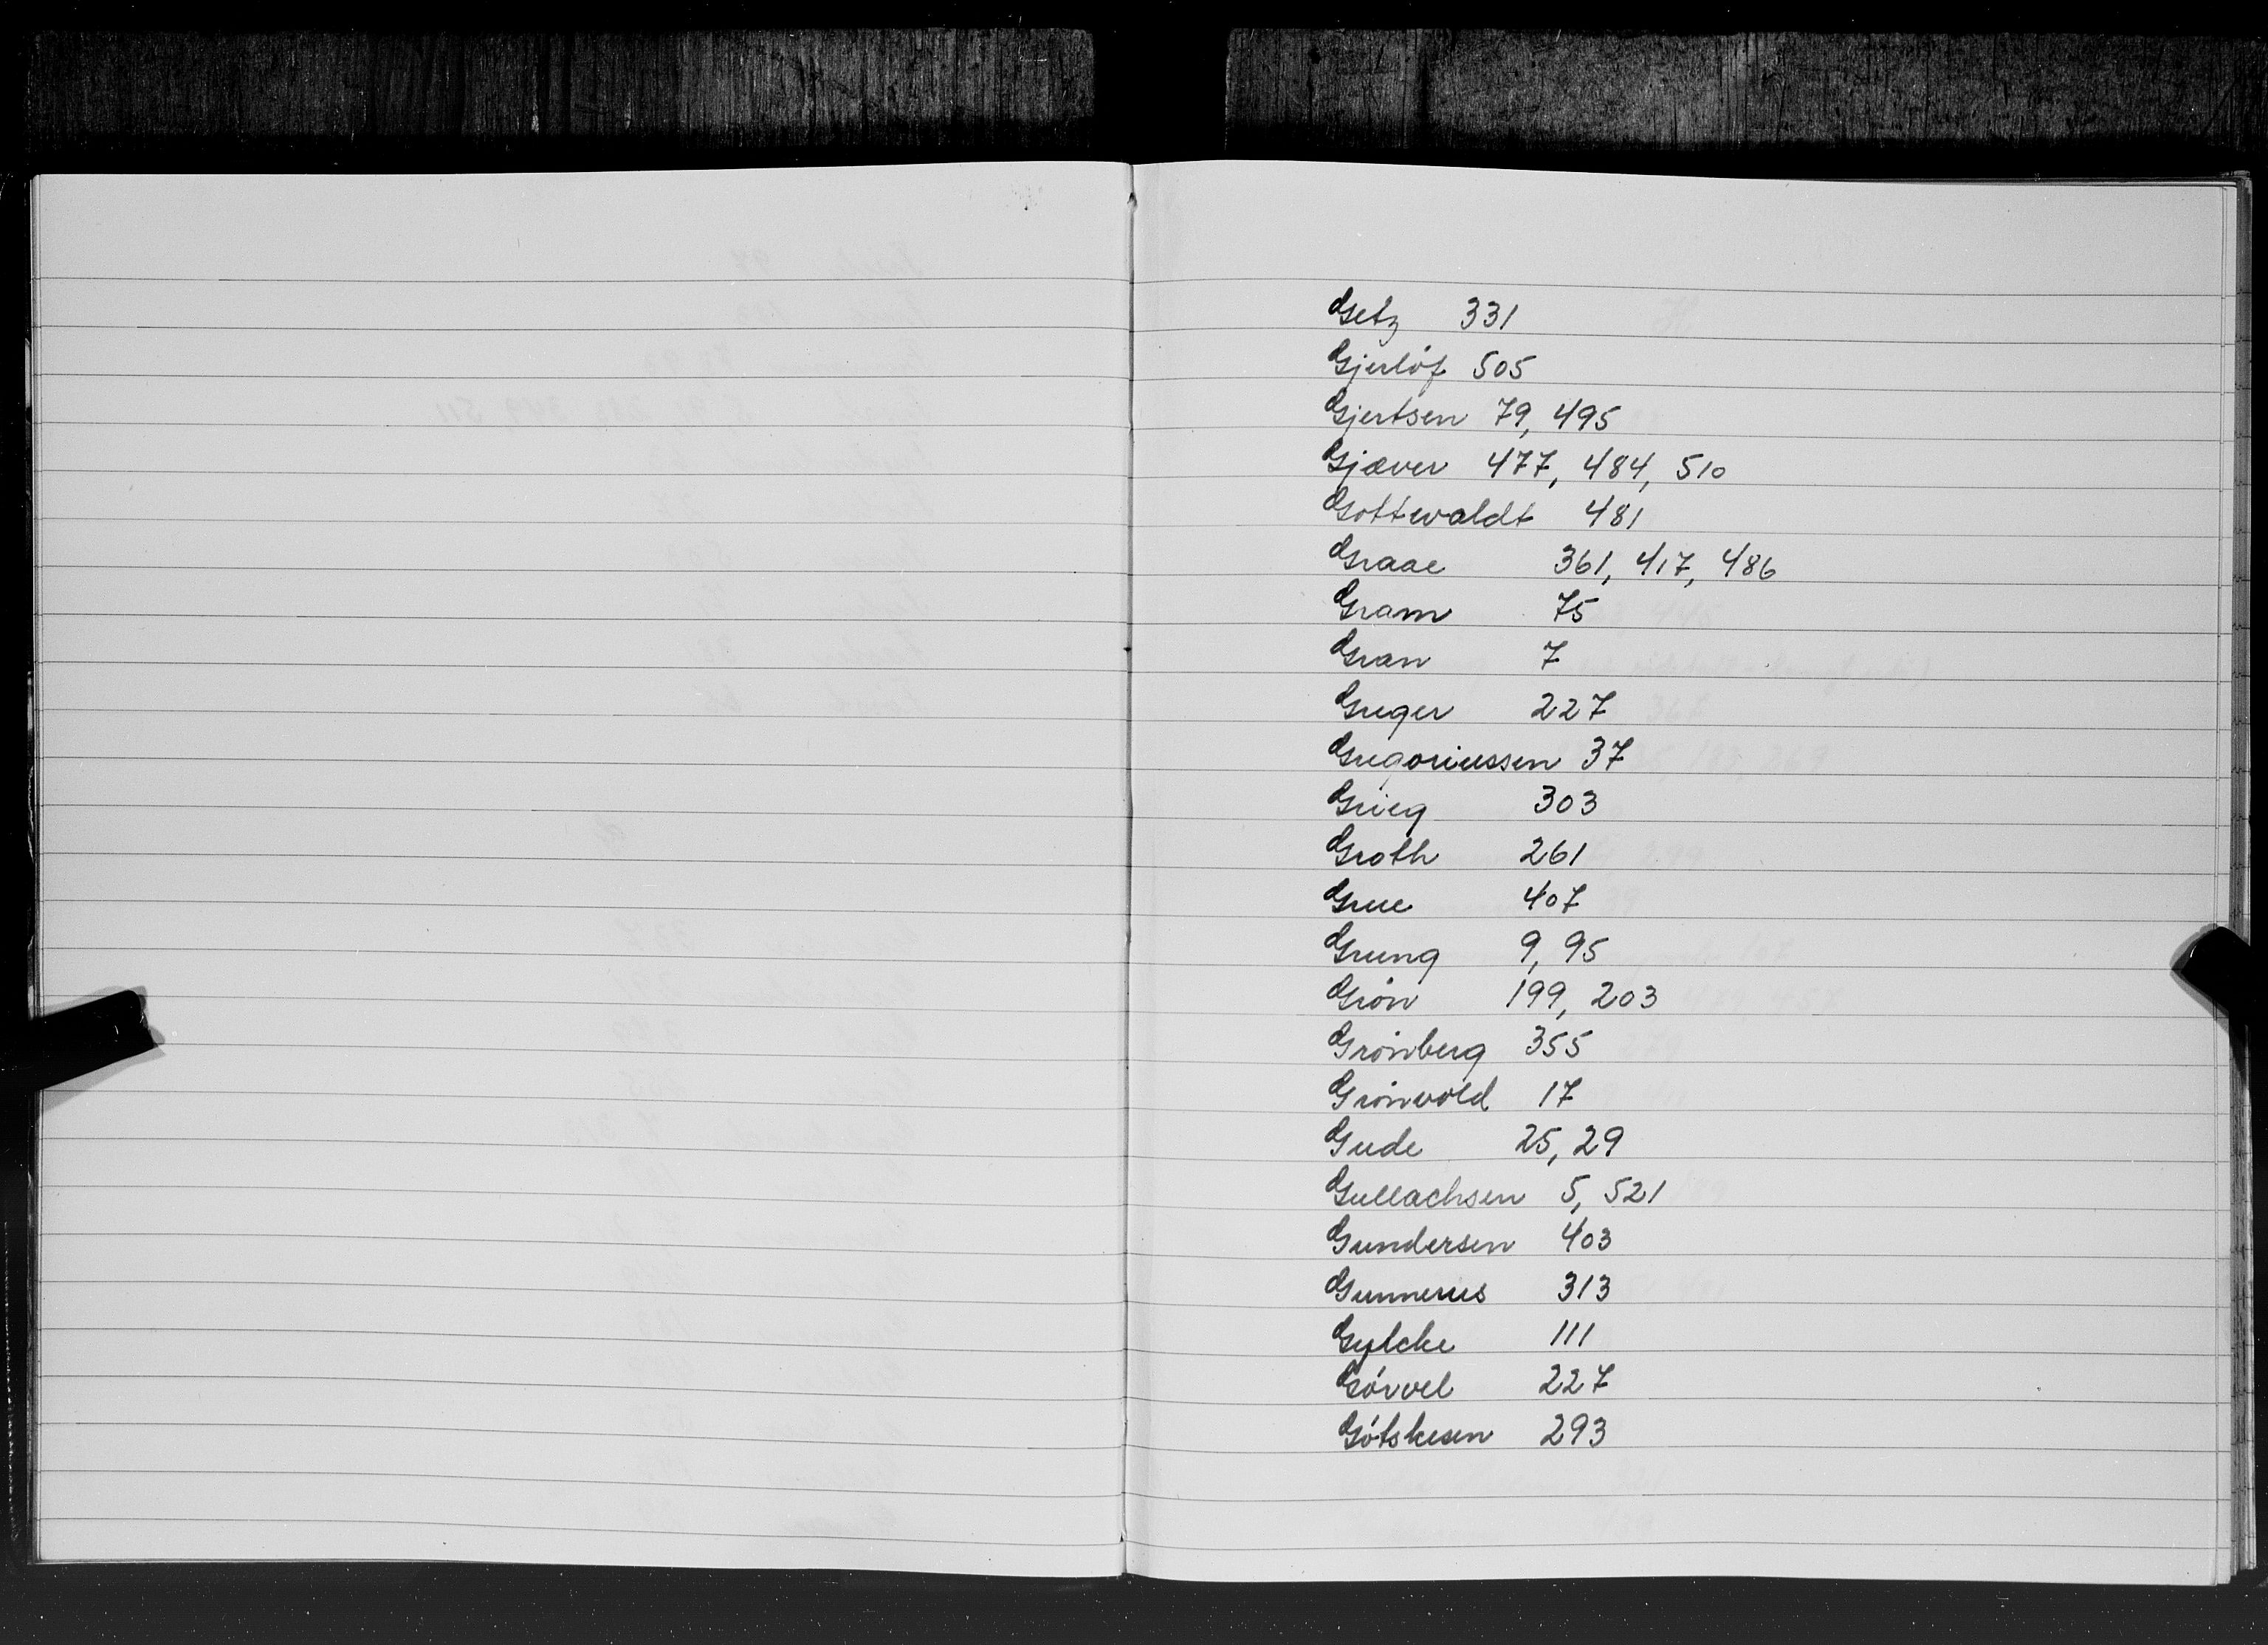 Getz 331
Gjerløf 505
Gjertsen 79, 495
Gjæver 477, 484, 510
Gottwaldt 481
Graae 361, 417, 486
Gram 75
Gran 7
Greger 227
Gregoriussen 37
Grieg 303
Groth 261
Grue 407
Grung 9, 95
Grøn 199, 203
Grønberg 355
Grønvold 17
Gude 25, 29
Gullachsen 5, 521
Gundersen 403
Gunnerus 313
Gylcke 111
Gørvel 227
Gøtskesen 293